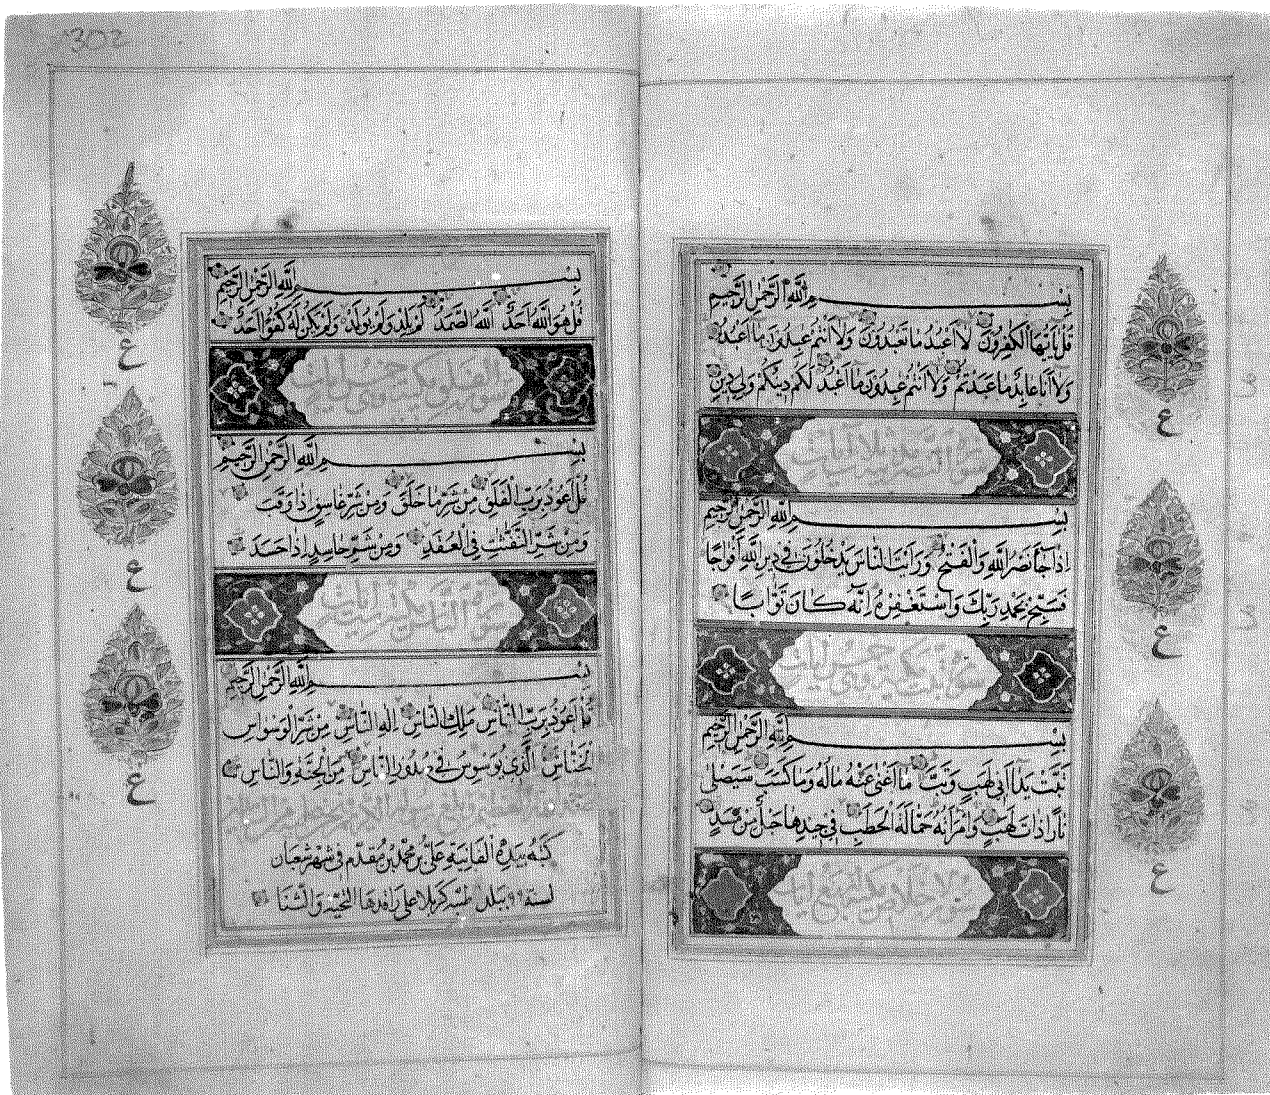 بسم الله الرحمن الرحيم
قل يأيها الكفرون لا أعبد ما تعبدون ولا أنتم عبدون ما أعبد
ولا أنا عابد ما عبدتم ولا أنتم عبدون ما أعبد لكم دينكم ولي دين
بسم الله الرحمن الرحيم
إذا جاء نصر الله والفتح ورأيت الناس يدخلون في دين الله أفواجا
فسبح بحمد ربك واستغفره إنه كان توابا
سورة تبت مكية وهي خمس آيات
بسم الله الرحمن الرحيم
تبت يدا أبي لهب وتب ما أغنى عنه ماله وما كسب سيصلى
نارا ذات لهب وامرأته حمالة الحطب في جيدها حبل من مسد
سورة الإخلاص مكية أربع آيات
ع
ع
ع
302
بسم الله الرحمن الرحيم
قل هو الله أحد الله الصمد لم يلد ولم يولد ولم يكن له كفوا أحد
سورة الفلق مكية وهي خمس آيات
بسم الله الرحمن الرحيم
قل أعوذ برب الفلق من شر ما خلق ومن شر غاسق إذا وقب
ومن شر النفثت في العقد ومن شر حاسد إذا حسد
سورة الناس آيات
بسم الله الرحمن الرحيم
قل أعوذ برب الناس ملك الناس إله الناس من شر الوسواس
الخناس الذي يوسوس في صدور الناس من الجنة والناس
كتبه بيده الفانية علي بن محمد بن مقدم في شهر شعبان
لسنة ٩٩ ببلد طيبة كربلا على راقدها التحية والثنا
ع
ع
ع